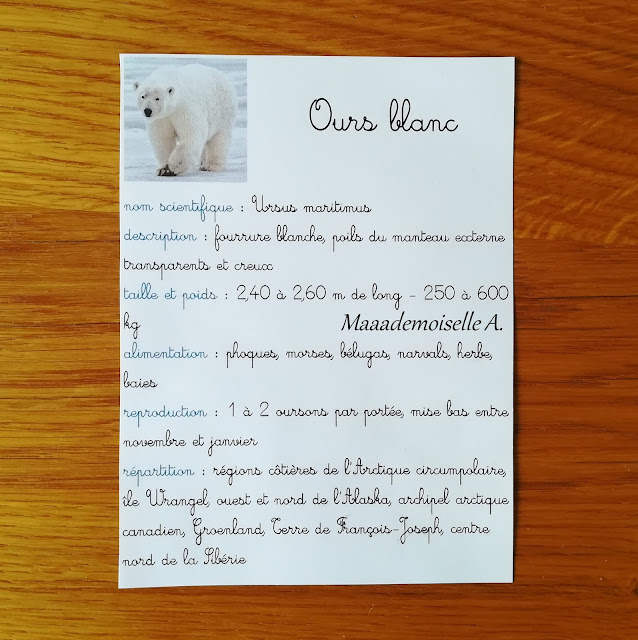 Ours blanc
nom scientifique : Ursus maritimus
description : fourrure blanche, poils du manteau externe
transparents et creux
taille et poids : 2,40 à 2,60 m de long - 250 à 600
kg
Maaademoiselle A.
alimentation : phoques, morses, bélugas, narvals, herbe,
baies
reproduction : 1 à 2 oursons par portée, mise bas entre
novembre et janvier
répartition : régions côtières de l'Arctique circumpolaire,
île Wrangel, ouest et nord de l'Alaska, archipel arctique
canadien, Groenland, Terre de François-Joseph, centre
nord de la Sibérie